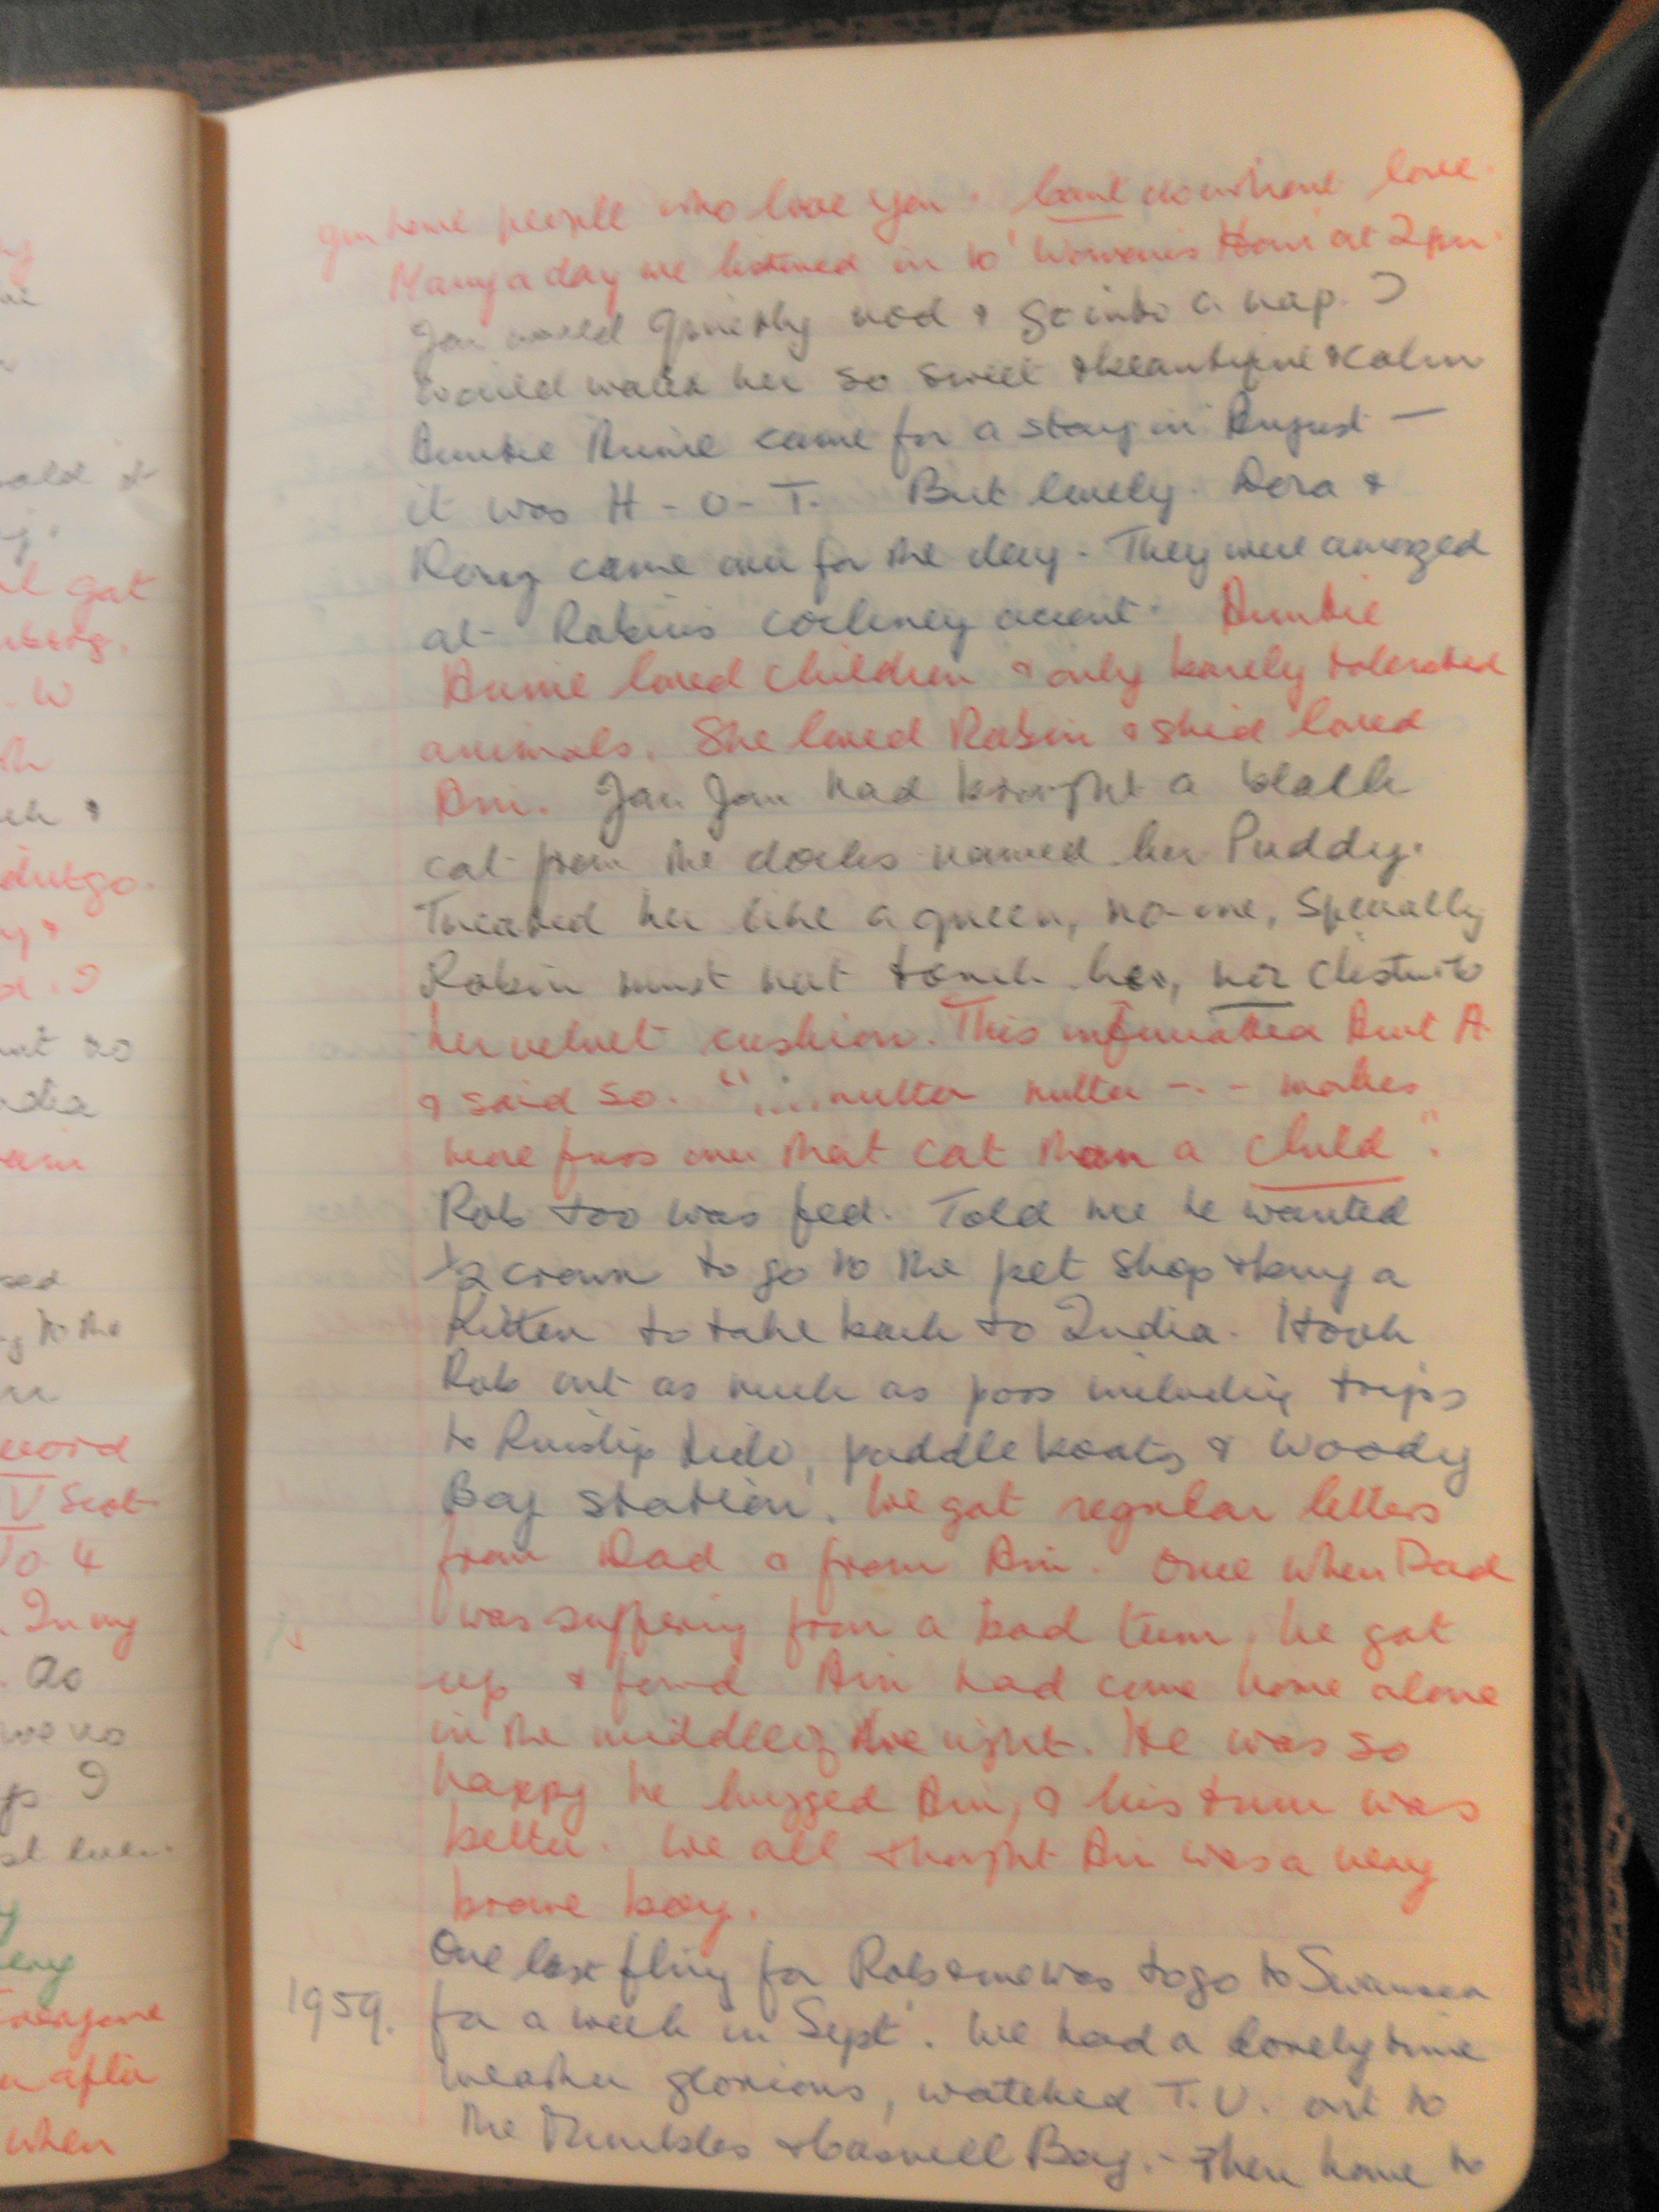 you have people who love you. Cant do without love.
Many a day we listened in to 'Woman's Hour at 2pm
Jan would quietly nod & go into a nap. I
would watch her so sweet & beautiful & calm
Auntie Annie came for a stay in August —
it was H-O-T. But lovely. Dora &
came over for the day. They were amazed
at Robin's cockney accent. Auntie
Annie loved children & only barely tolerated
animals. She loved Robin & she'd loved
Jan Jan had brought a black
cat from the docks named her Puddy.
Treated her like a queen, no-one, specially
Robin must not touch her, nor disturb
her velvet cushion. This infuriated Aunt A
& said so. "....mutter mutter --- makes
more fuss over that cat than a child".
Rob too was fed. Told me he wanted
½ crown to go to the pet shop & buy a
kitten to take back to India. I took
Rob out as much as poss including trips
to Ruislip Lido, paddle boats & Woody
Bay station. We got regular letters
from Dad & from Once when Dad
was suffering from a bad tum, he got
up & found had come home alone
in the middle of the night. He was so
happy he hugged & his tum was
better. We all thought was a very
brave boy.
One last fling for Rob & me was to go to Swansea
1959. for a week in Sept. We had a lovely time
weather glorious, watched T.V. out to
the Mumbles & Caswell Bay. - Then home to
old &
got
W
& 
no
the
word
V Scot
To 4
In my
Do
I
Everyone
after
when